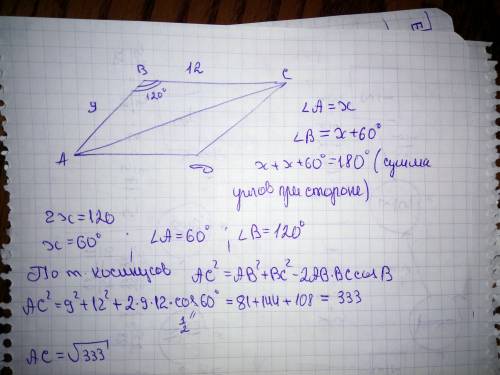 B 12 C
9 120°
A
∠A = x
∠B = x+60°
x+x+60°=180° (сумма
углов при стороне)
2x=120
x=60° ; ∠A=60° ; ∠B=120°
По т. косинусов AC²=AB²+BC²-2AB·BC cos B
AC²=9²+12²+2·9·12·cos60°=81+144+108=333
1/2
AC=√333